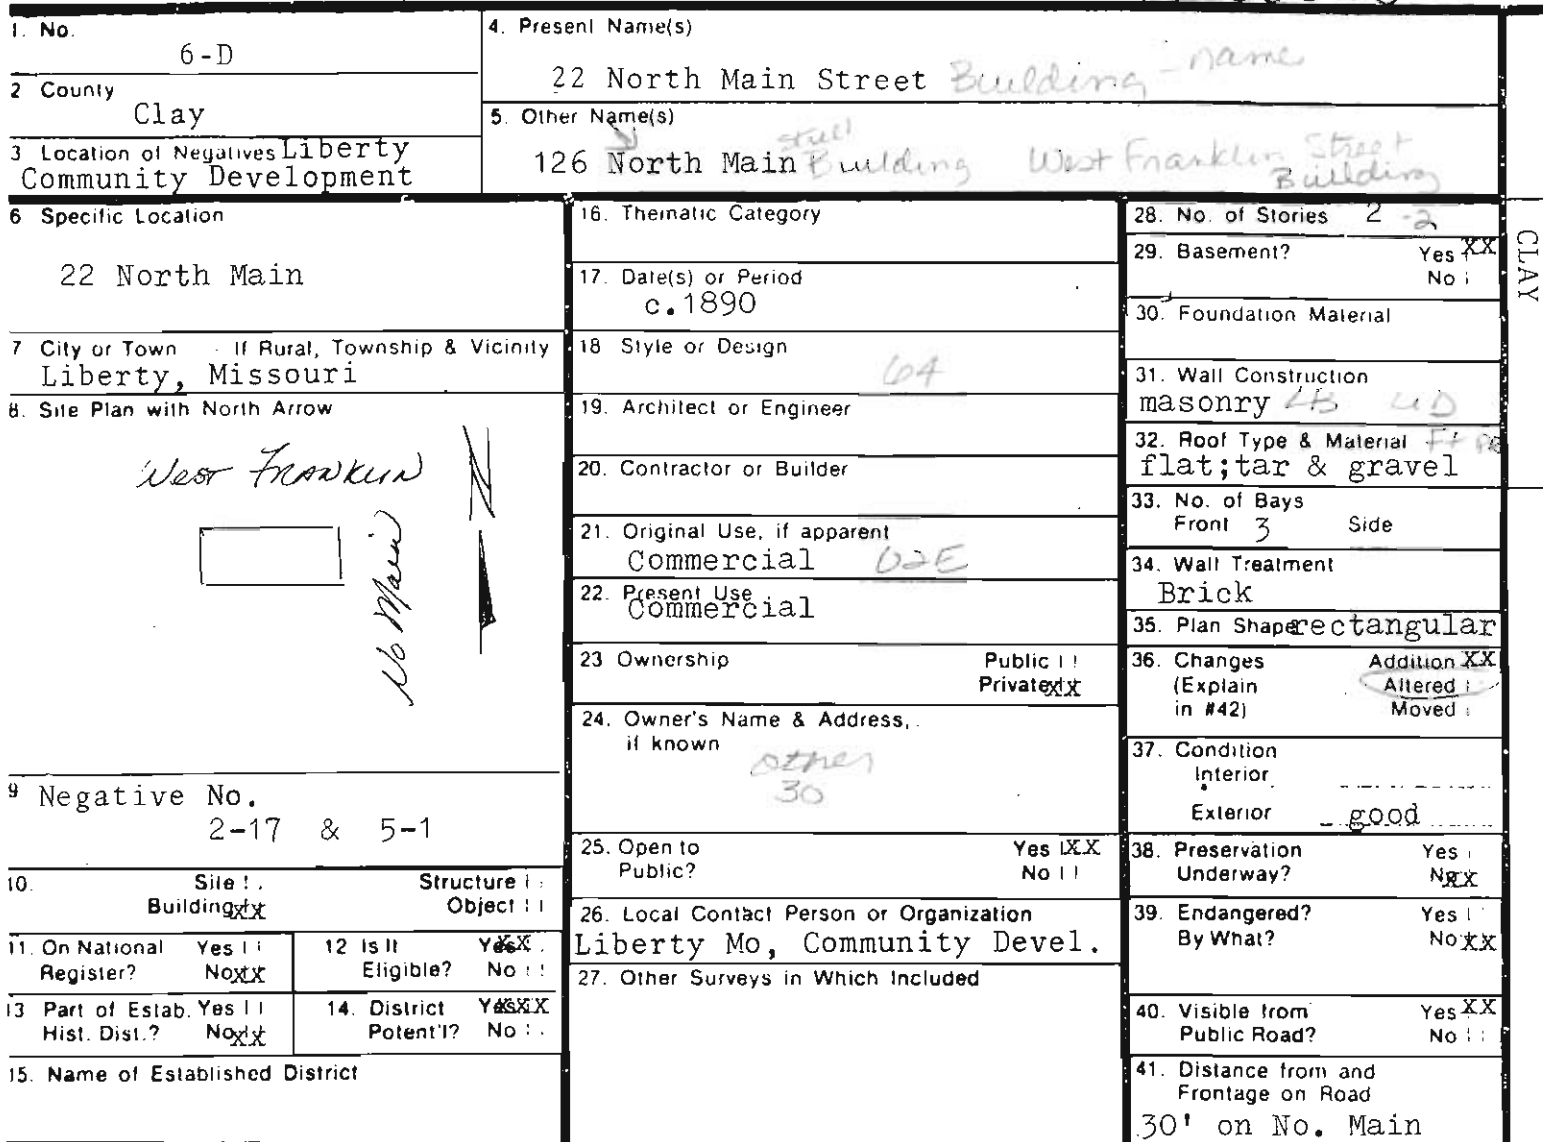 1. No.
6-D
2 County
Clay
3 Location of Negatives Liberty
Community Development
4. Present Name(s)
22 North Main Street Building - name
5. Other Name(s)
126 North Main Street Building West Franklin Street Building
6 Specific Location
22 North Main
7 City or Town If Rural, Township & Vicinity
Liberty, Missouri
8. Site Plan with North Arrow
West Franklin
N
No Main
9 Negative No.
2-17 & 5-1
10. Site Structure
Building XX Object
11. On National Register? Yes No XX
12 Is It Eligible? Yes XX No
13 Part of Estab. Hist. Dist.? Yes No XX
14. District Potent'l? Yes XX No
15. Name of Established District
16. Thematic Category
17. Date(s) or Period
c.1890
18 Style or Design
64
19. Architect or Engineer
20. Contractor or Builder
21. Original Use, if apparent
Commercial 02E
22. Present Use
Commercial
23 Ownership Public
Private XX
24. Owner's Name & Address,
if known
other
30
25. Open to Yes XX
Public? No
26. Local Contact Person or Organization
Liberty Mo, Community Devel.
27. Other Surveys in Which Included
28. No. of Stories 2 -2
29. Basement? Yes XX
No
30. Foundation Material
31. Wall Construction
masonry
32. Roof Type & Material
flat;tar & gravel
33. No. of Bays
Front 3 Side
34. Wall Treatment
Brick
35. Plan Shape rectangular
36. Changes Addition XX
(Explain Altered
in #42) Moved
37. Condition
Interior
Exterior good
38. Preservation Yes
Underway? No XX
39. Endangered? Yes
By What? No XX
40. Visible from Yes XX
Public Road? No
41. Distance from and
Frontage on Road
30' on No. Main
CLAY